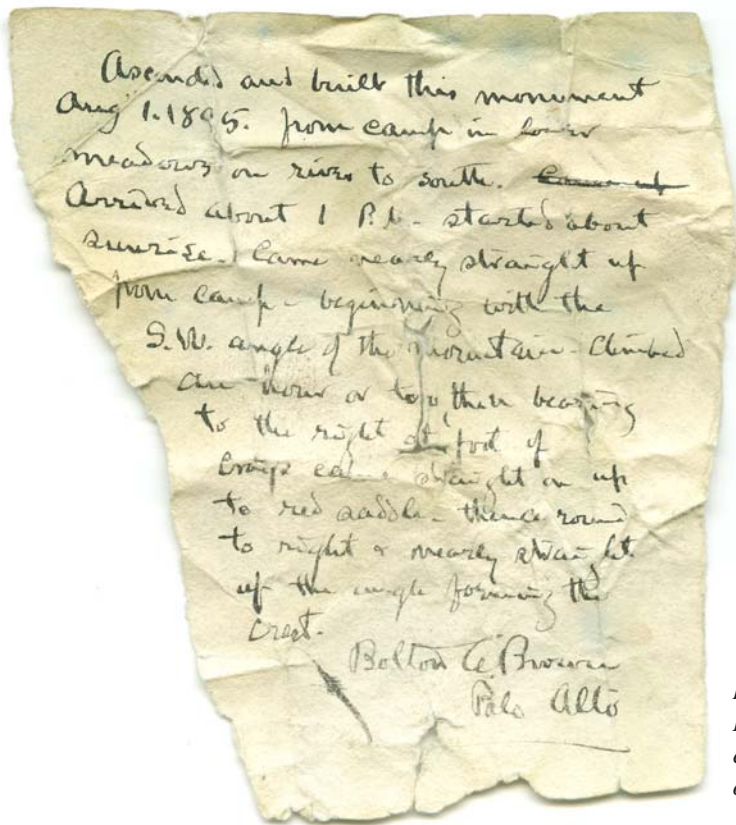 Ascended and built this monument
Aug 1. 1895. from camp in lower
meadows on river to south. Came up
Arrived about 1 P.M. - started about
sunrise. Came nearly straight up
from camp - beginning with the
S.W. angle of the mountain - climbed
an hour or two, then bearing
to the right at foot of
crags came straight on up
to red saddle - thence round
to right & nearly straight
up the angle forming the
crest.
Bolton C. Brown
Palo Alto